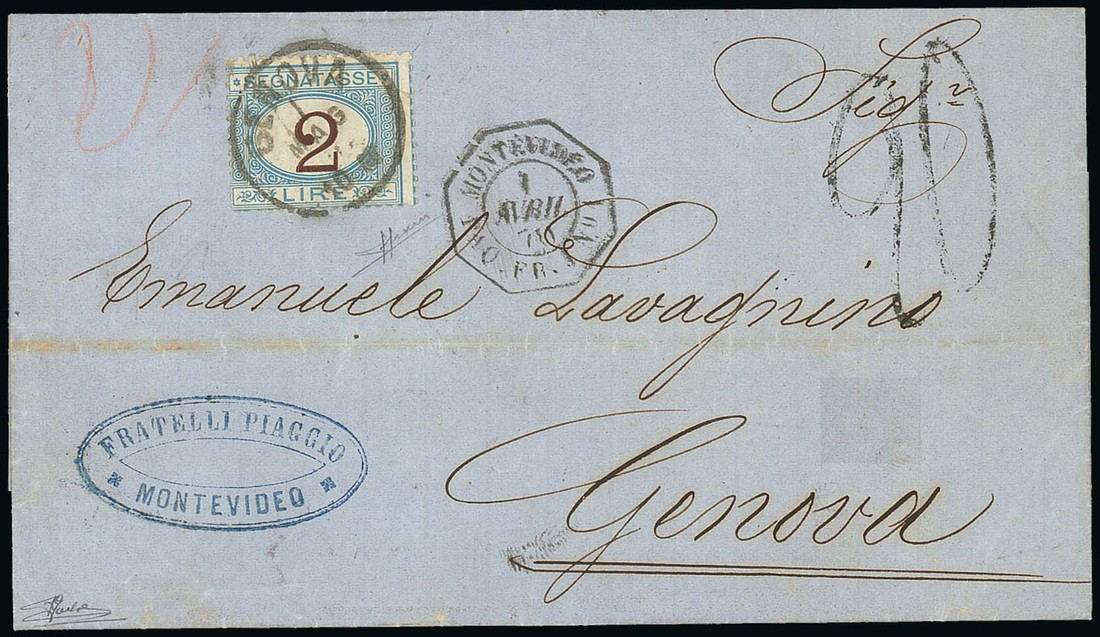 SEGNATASSE
2
LIRE
GENOVA
MONTEVIDEO
1
AVRIL
Sigr
Emanuele Lavagnino
Genova
FRATELLI PIAGGIO
MONTEVIDEO